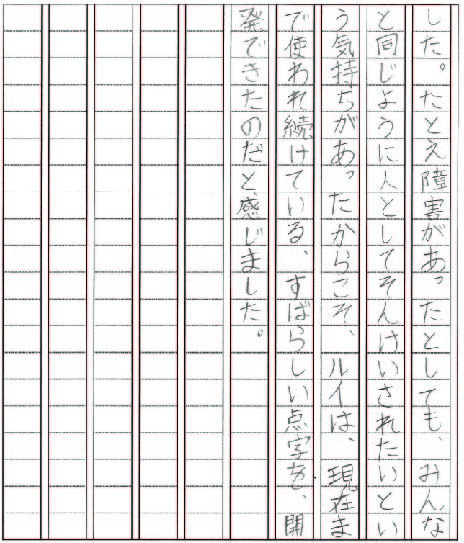 した。たとえ障害があったとしても、みんな
と同じように人としてそんけいされたいとい
う気持ちがあったからこそ、ルイは、現在ま
で使われ続けている、すばらしい点字を、開
発できたのだと感じました。